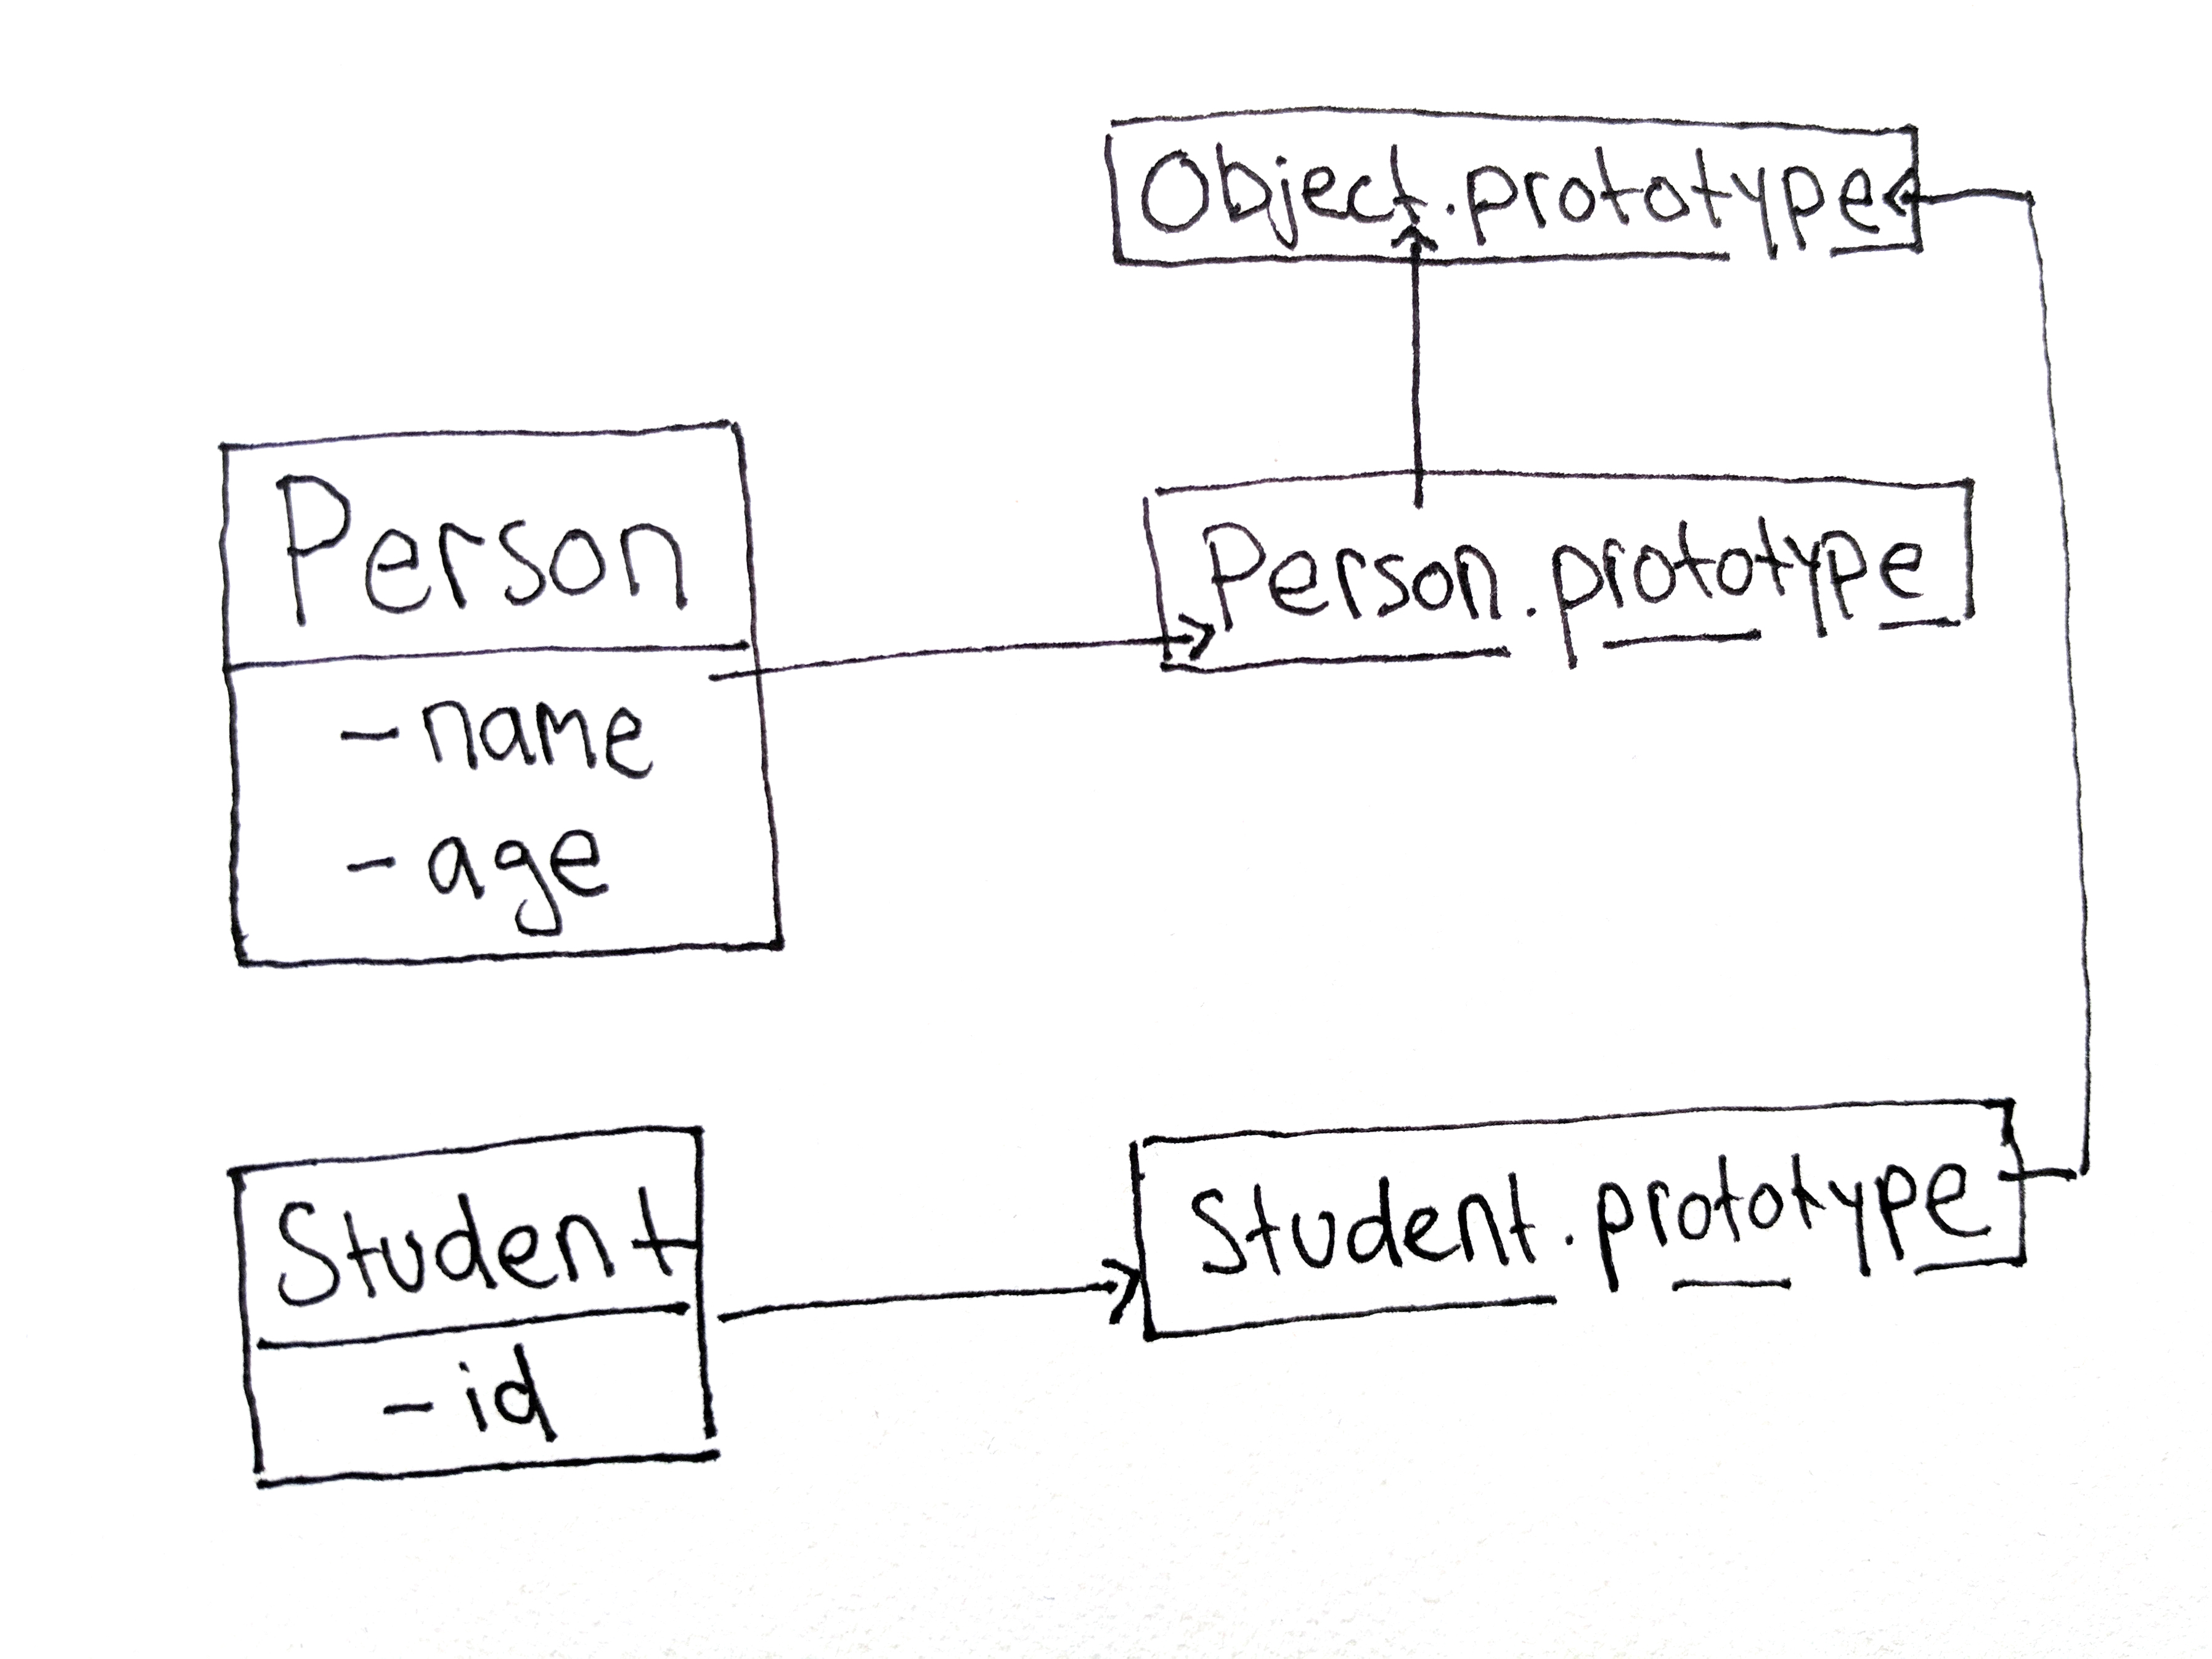 Object.prototype
Person
- name
- age
Person.prototype
Student
- id
Student.prototype